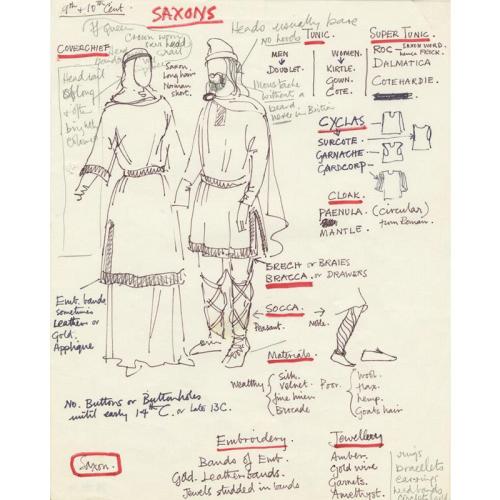 9th + 10th Cent.
SAXONS
If Queen
Crown worn
over head
rail
Heads usually bare
No hoods
COVERCHIEF
Headrail
oblong
+ often
brightly
coloured
Saxon.
Long hair
Norman
short.
Moustache
without a
beard.
TUNIC.
MEN
DOUBLET.
WOMEN.
KIRTLE.
GOWN.
COTE.
SUPER TUNIC
ROC — SAXON WORD.
hence FROCK.
DALMATICA
COTEHARDIE.
CYCLAS
SURCOTE
GARNACHE
GARDCORP
CLOAK.
PAENULA. (circular)
from Roman.
MANTLE.
BRECH or BRAIES
BRACCA. or DRAWERS
SOCCA
Peasant.
Noble.
Emb. bands
sometimes
Leather or
Gold.
Applique
Materials
Wealthy
Silk.
Velvet.
fine linen
Brocade
Poor.
Wool.
Flax.
hemp.
Goats hair
No. Buttons or Buttonholes
until early 14th C. or Late 13C.
Saxon.
Embroidery.
Bands of Emb.
Gold. Leather bands.
Jewels studded in bands
Jewellery
Amber.
Gold wire
Garnets.
Amethyst.
rings
bracelets
earrings
head bands